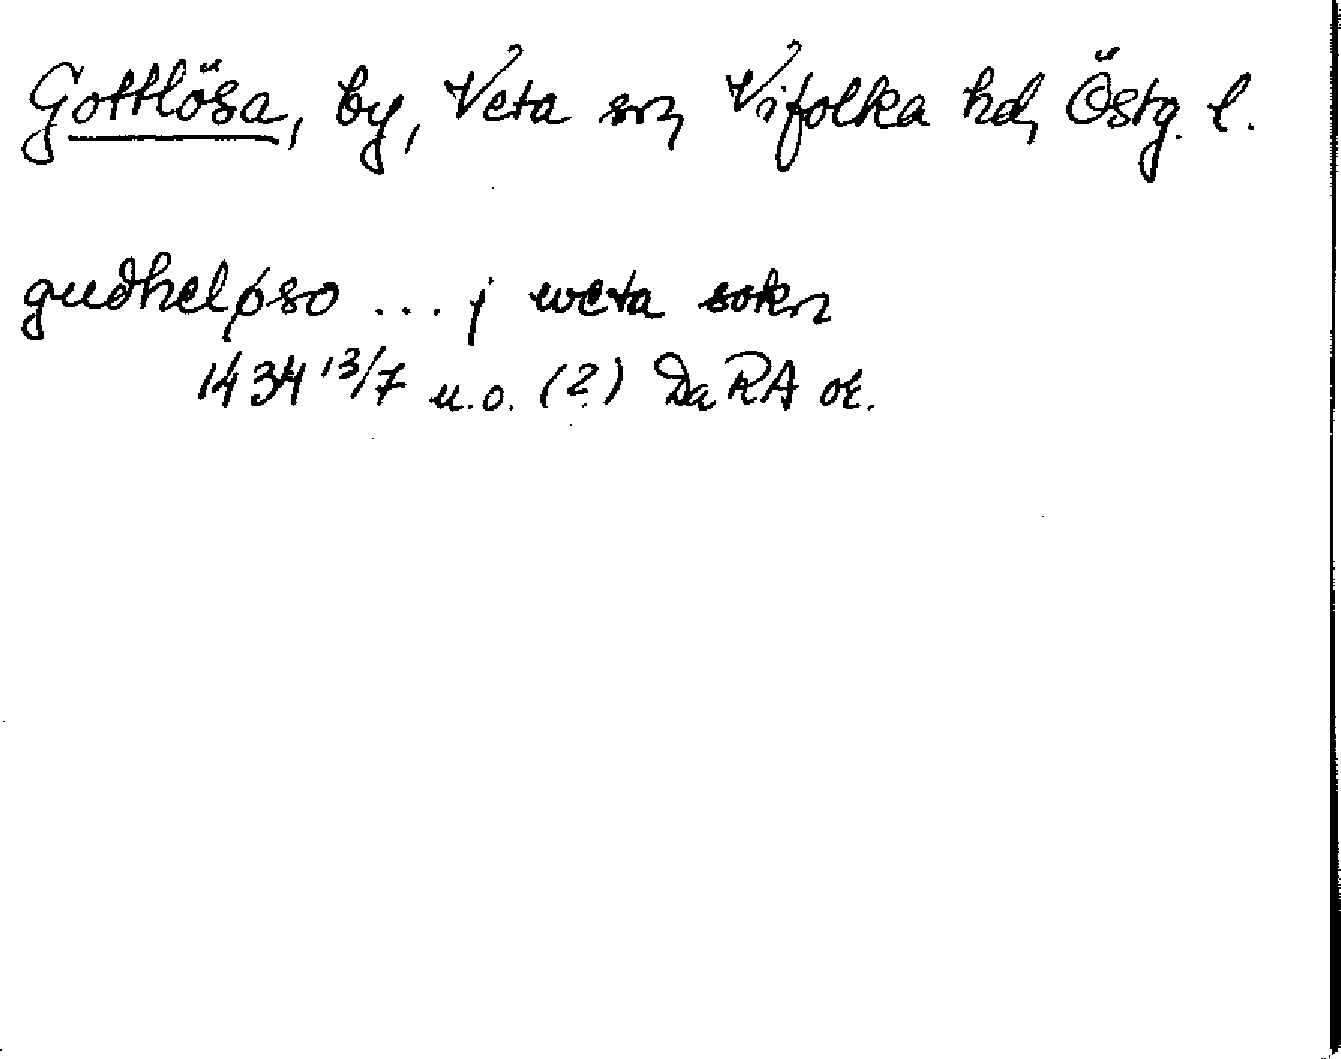 Gottlösa, by, Veta sn, Vifolka hd, Östg. l.
gudheløso ... j weta sokn
1434 13/7 u.o. (?) DaRA or.